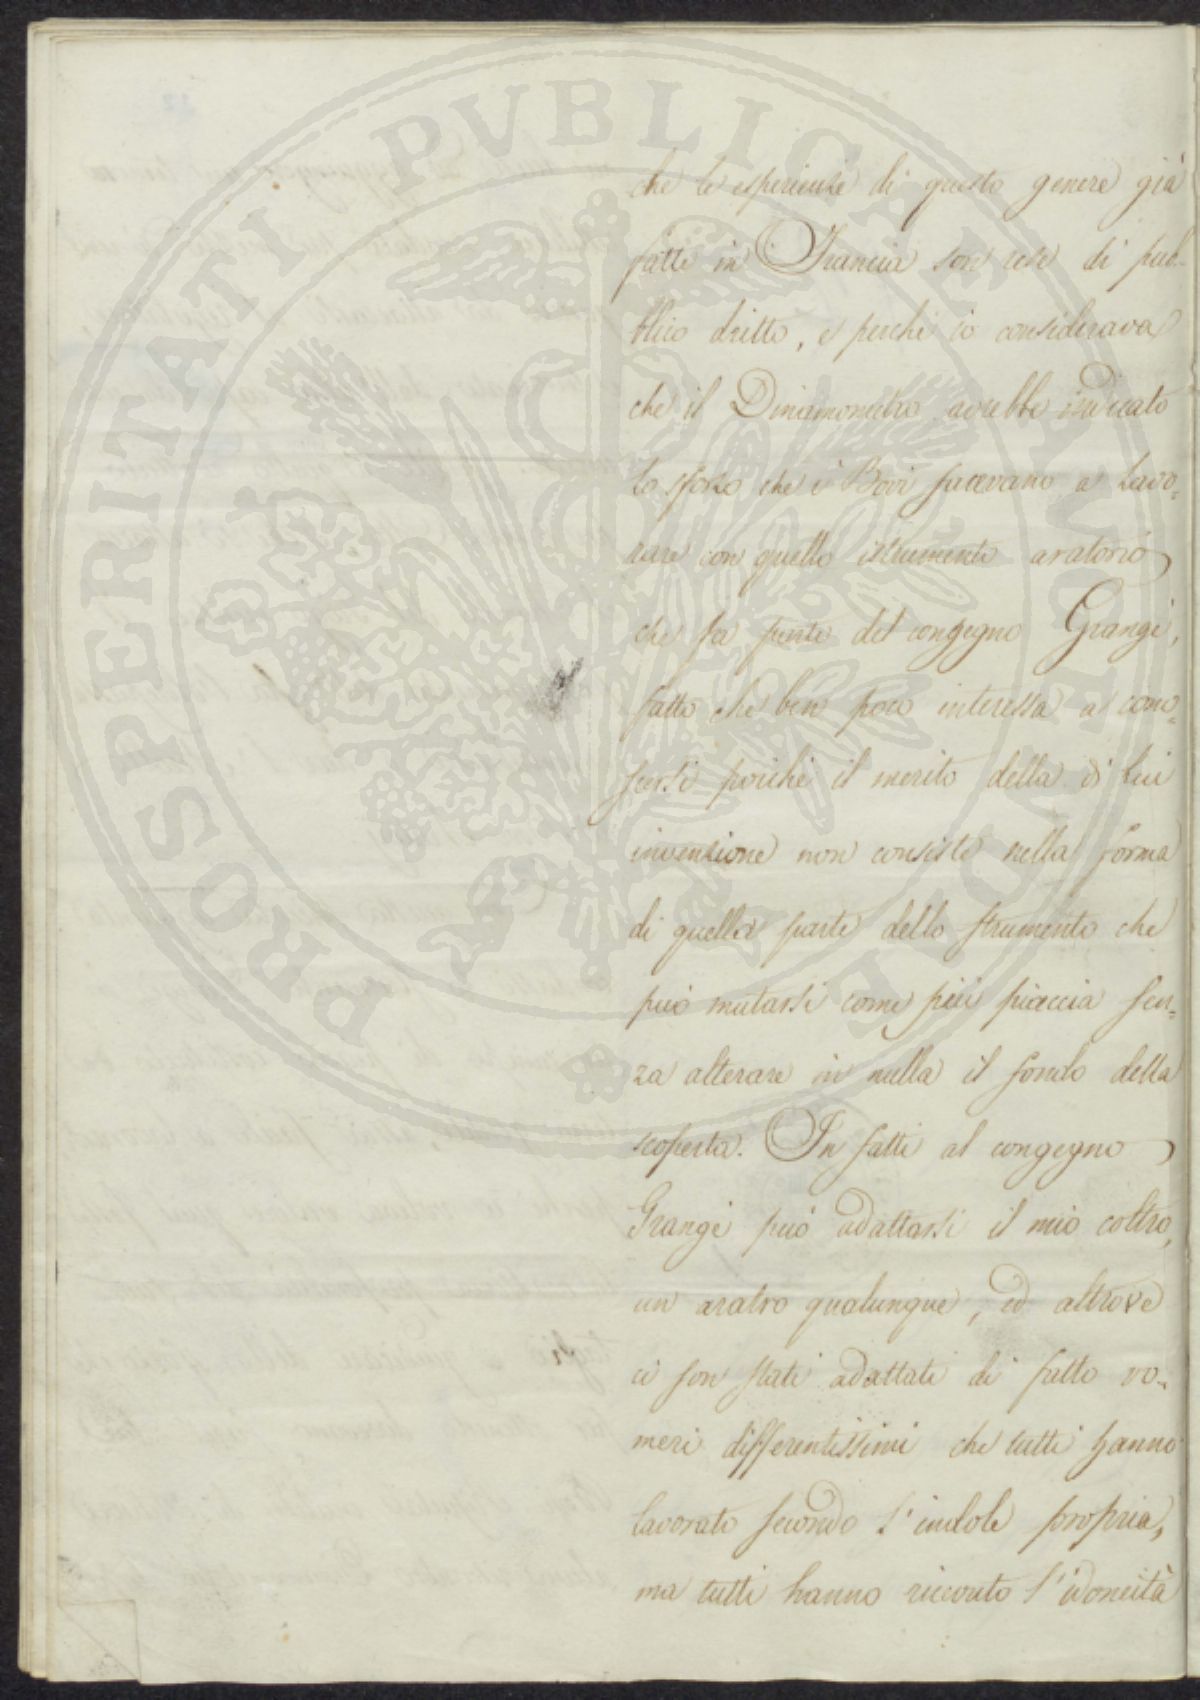 che le esperienze di questo genere già
fatte in Francia son rese di pub-
blico dritto, e perchè io considerava
che il Dinamometro avrebbe indicato
lo sforzo che i Bovi facevano a lavo=
rare con quello istrumento aratorio
che fa parte del congegno Grangé,
fatto che ben poco interessa a cono=
scersi poichè il merito della di lui
invenzione non consiste nella forma
di quella parte dello strumento che
può mutarsi come più piaccia sen=
za alterare in nulla il fondo della
scoperta. In fatti al congegno
Grangé può adattarsi il mio coltro,
un aratro qualunque, ed altrove
ci son stati adattati di fatto vo=
meri differentissimi che tutti hanno
lavorato secondo l'indole propria,
ma tutti hanno ricevuto l'idoneità
PROSPERITATI PUBLICAE AUGENDAE